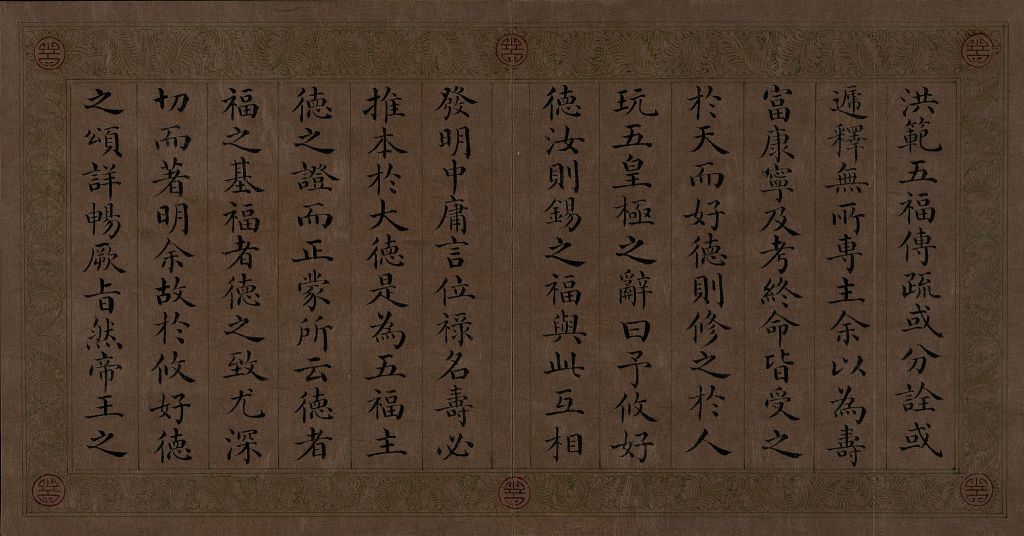 洪範五福傳疏或分詮或
遞釋無所専主余以為壽
富康寧及考終命皆受之
於天而好德則修之於人
玩五皇極之辭曰予攸好
德汝則錫之福與此互相
發明中庸言位祿名壽必
推本於大德是為五福主
德之證而正蒙所云德者
福之基福者德之致尤深
切而著明余故於攸好德
之頌詳暢厥旨然帝王之